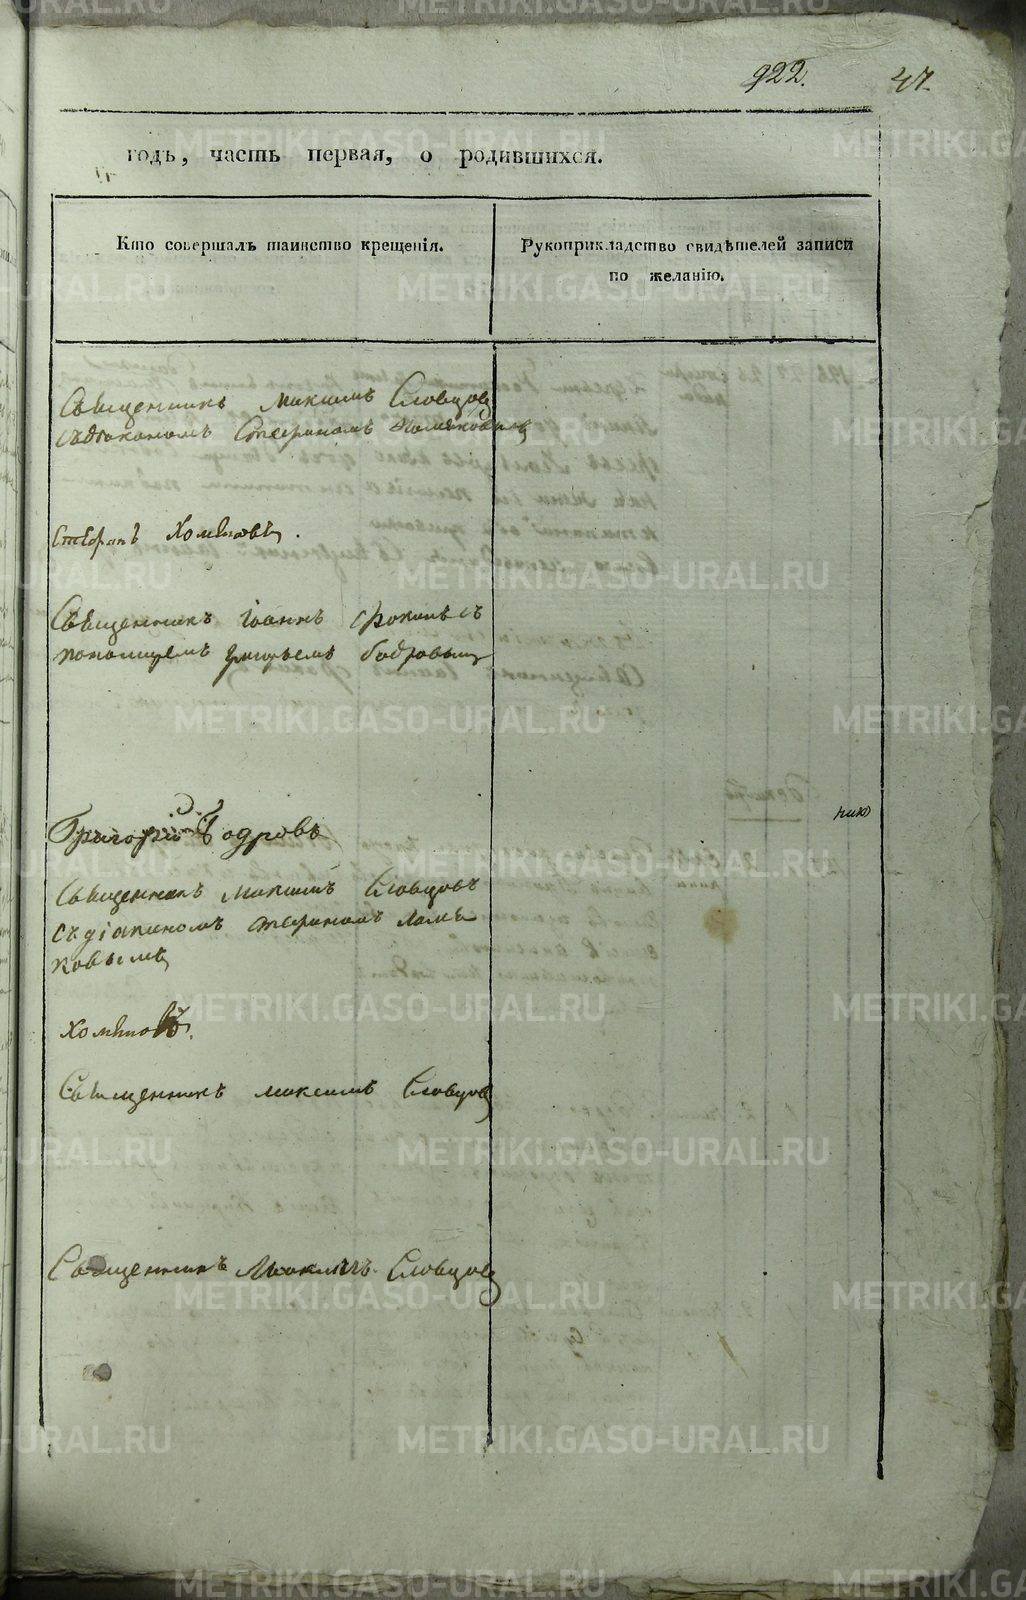 922.
47.
годъ, часть первая, о родившихся.
Кто совершалъ таинство крещенія.
Рукоприкладство свидѣтелей записи
по желанію.
Священникъ Максимъ Словцовъ
съ діакономъ Стефаномъ Хомяковымъ
Стефанъ Хомяковъ.
Священникъ Іоаннъ съ
пономаремъ Григорьемъ Бодровымъ
Григорій Бодровъ
Священникъ Максимъ Словцовъ
съ діакономъ Стефаномъ Хомя
ковымъ
Хомяковъ.
Священникъ Максимъ Словцовъ
Священникъ Максимъ Словцовъ
METRIKI.GASO-URAL.RU